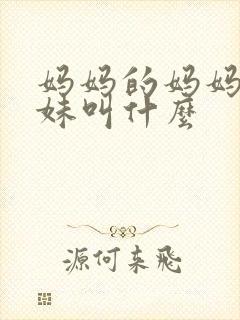 妈妈的妈妈
妹叫什麼
源何来飛